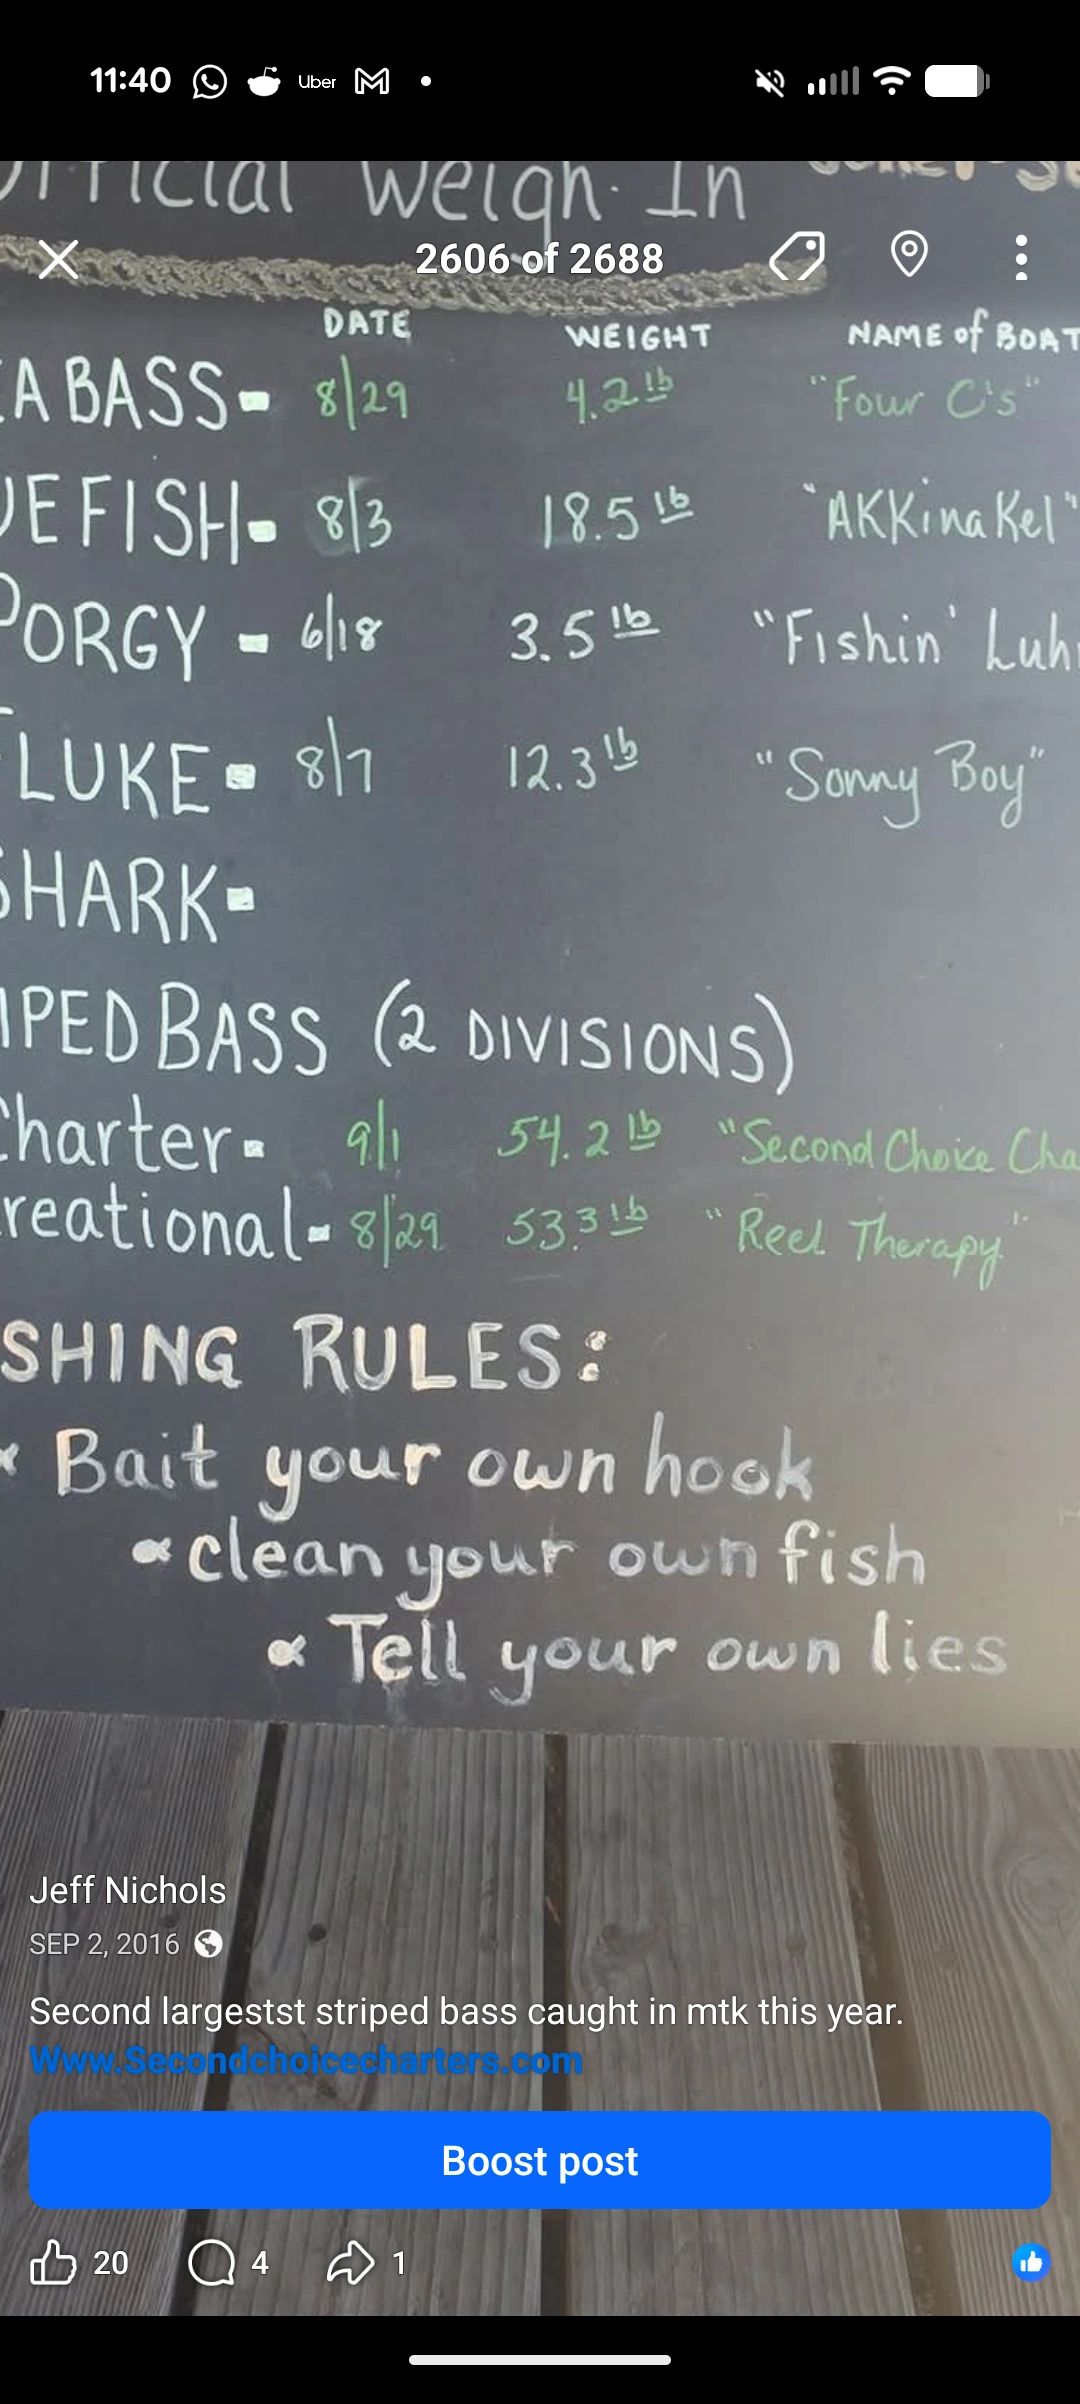 11:40 Uber
Official Weigh-In
2606 of 2688
DATE WEIGHT NAME of BOAT
EA BASS- 8/29 4.2 lb "Four C's"
UEFISH- 8/3 18.5 lb "AKKinaKel"
PORGY - 6/18 3.5 lb "Fishin' Luh
FLUKE- 8/7 12.3 lb "Sonny Boy"
SHARK-
IPED BASS (2 DIVISIONS)
Charter- 9/1 54.2 lb "Second Choice Cha
reational- 8/29 53.3 lb "Reel Therapy"
SHING RULES:
Bait your own hook
clean your own fish
Tell your own lies
Jeff Nichols
SEP 2, 2016
Second largestst striped bass caught in mtk this year.
Www.Secondchoicecharters.com
Boost post
20 4 1